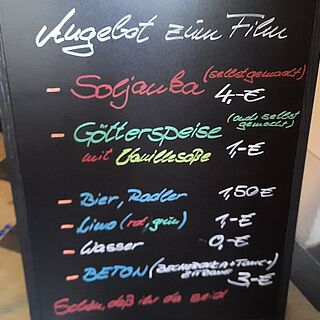 Angebot zum Film
- Soljanka (selbstgemacht) 4,-€
- Götterspeise (auch selbst gemacht)
mit Vanillesoße 1,-€
- Bier, Radler 1,50€
- Limo (rot, grün) 1,-€
- Wasser 0,-€
- BETON (BECHEROVKA + TONIC + ZITRONE) 3,-€
Schön, daß ihr da seid